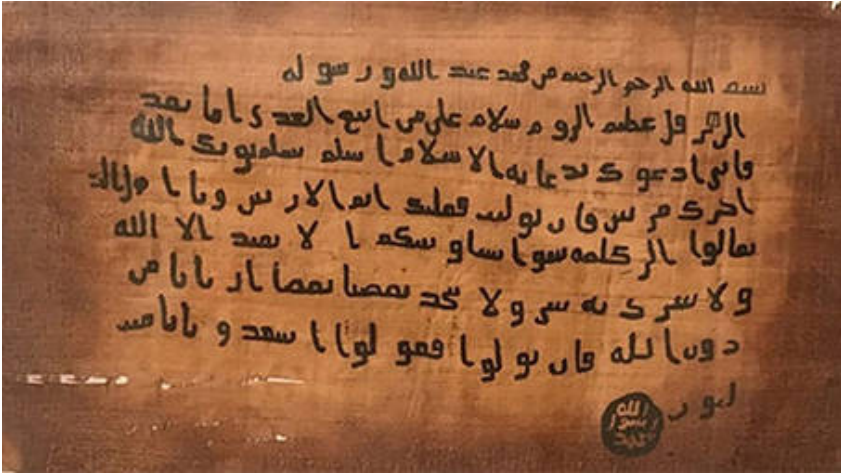 بسم الله الرحمن الرحيم من محمد عبد الله ورسوله
الى هرقل عظيم الروم سلام على من اتبع الهدى اما بعد
فانى ادعوك بدعاية الاسلام اسلم تسلم يوتك الله
اجرك مرتين فان توليت فعليك اثم الاريسين ويا اهل
تعالوا الى كلمة سوا بيننا وبينكم ا لا نعبد الا الله
ولا نشرك به شى ولا يتخذ بعضنا بعضا اربابا من
دون الله فان تولوا فقولوا اشهدوا باننا مسـ
لمون
الله
رسول
محمد